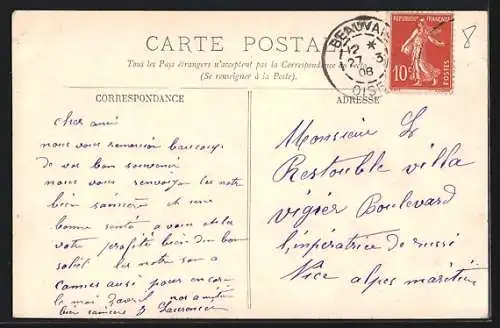 CARTE POSTALE
Tous les Pays étrangers n'acceptent pas la Correspondance au
(Se renseigner à la Poste).
BEAUVAIS
12 *
27 3
08
OISE
REPUBLIQUE FRANÇAISE
10c
8
CORRESPONDANCE
cher ami
nous vous remercion beaucoup
de vos bon souvenir
nous vous renvoyon les notre
bien sincere et une
bonne santé a vous et la
votre profité bien du bon
soleil les notre son a
cannes aussi pour encore
le moi d'avril nos amitié
bien sincere
ADRESSE
Monsieur
Restouble villa
vigier Boulevard
l'impératrice de russi
Nice alpes maritime